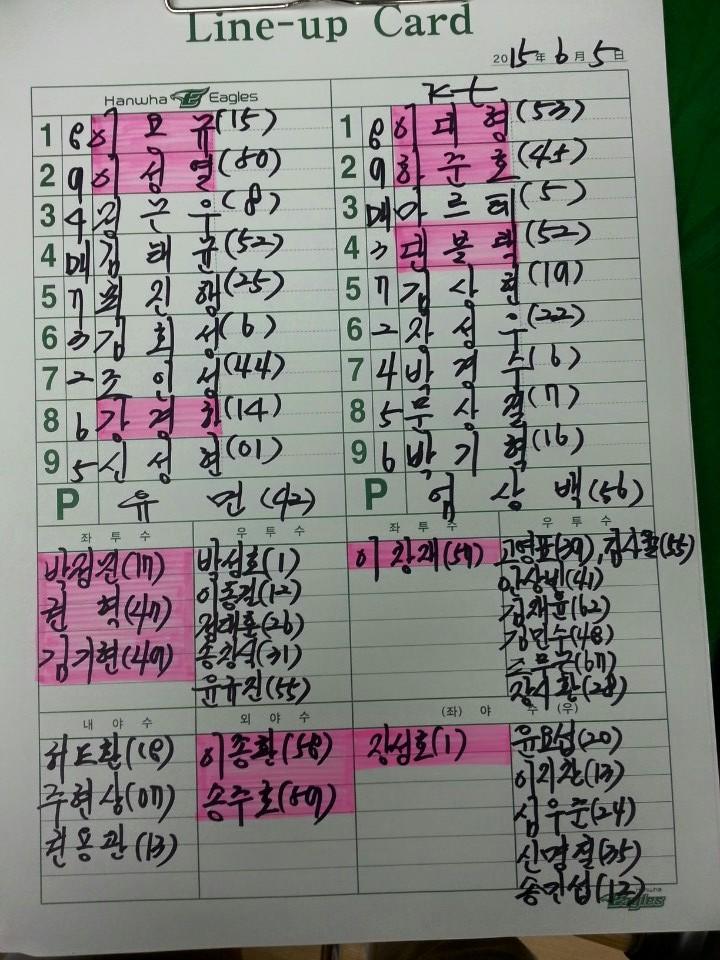 Line-up Card
2015年 6月 5日
Hanwha Eagles
kt
1 8 이 용 규 (15)
2 9 이 성 열 (50)
3 4 정 근 우 (8)
4 DH 김 태 균 (52)
5 7 최 진 행 (25)
6 3 김 회 성 (6)
7 2 조 인 성 (44)
8 6 강 경 학 (14)
9 5 신 성 현 (01)
P 유 먼 (42)
1 8 이 대 형 (53)
2 9 하 준 호 (45)
3 DH 마 르 테 (5)
4 3 댄 블 랙 (52)
5 7 김 상 현 (19)
6 2 장 성 우 (22)
7 4 박 경 수 (6)
8 5 문 상 철 (7)
9 6 박 기 혁 (16)
P 엄 상 백 (56)
좌 투 수
박정진 (17)
권 혁 (47)
김기현 (49)
우 투 수
박성호 (1)
이동걸 (12)
송창식 (31)
윤규진 (55)
좌 투 수
이 창재 (57)
우 투 수
고영표 (39), 김사율 (55)
안상빈 (41)
김재윤 (62)
김민수 (48)
조무근 (67)
장시환 (28)
내 야 수
허도환 (18)
주현상 (07)
권용관 (13)
외 야 수
이종환 (58)
송주호 (09)
(좌) 야 수 (우)
장성호 (1)
윤요섭 (20)
이지찬 (13)
심우준 (24)
신명철 (35)
송민섭 (12)
Hanwha Eagles